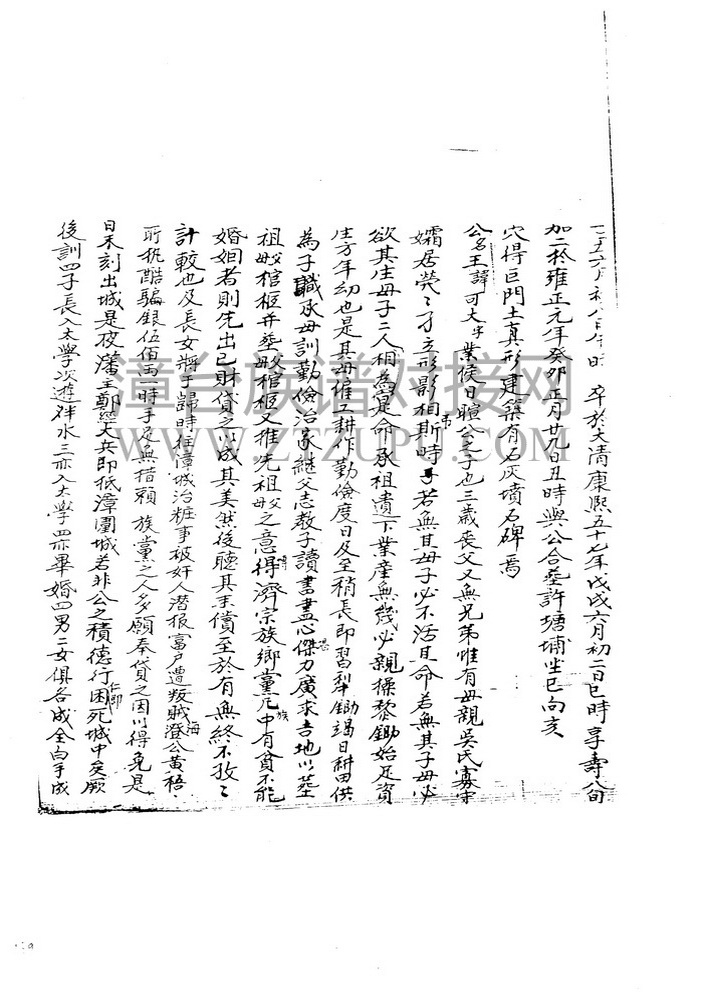 六月初八日午時 卒於大清康熙五十七年戊戌六月初二日巳時享壽八旬
加二於雍正元年癸卯正月廿九日丑時與公合葬許塘埔坐巳向亥
穴得巨門土真形建築有石灰墳石碑焉
公名王諱可大字 業侯日暄公之子也三歲喪父又無兄弟惟有母親吳氏寡守
孀居煢〻孑立形影相弔斯時子若無其母子必不活其命若無其子母必
欲其生母子二人相為命承祖遺下業產無幾必親操黎鋤始足資
生方年幼也是其母僱工耕作勤倫度日及至稍長即習犁鋤竭日耕田供
為子職承母訓勤儉治家繼父志教子讀書盡心傑力廣求吉地以塟
祖父母棺柩并塟父母棺柩又推先祖父母之意得濟宗族鄉黨凡族中有貧不能
婚姻者則先出己財貸之以成其美然後聽其末償至於有無終不孜〻
計較也及長女將于歸時往漳城治粧事被奸人潛报富戶遭叛賊海澄公黃梧
所执酷騙銀伍佰両一時手足無措賴族黨之人多願奉貸之因以得免是
日未刻出城是夜藩主鄭經大兵即抵漳圍城若非公之積德行仁即困死城中矣厥
後訓四子長入太學次遊泮水三亦入太學四亦畢婚四男二女俱各成全白手成
漳台族谱对接网
WWW.ZTZUPU.COM